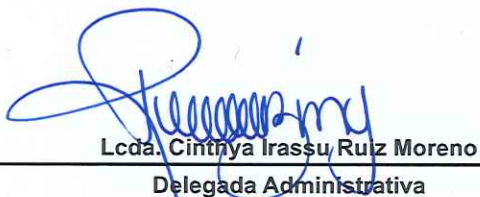 Lcda. Cinthya Irassu Ruiz Moreno
Delegada Administrativa